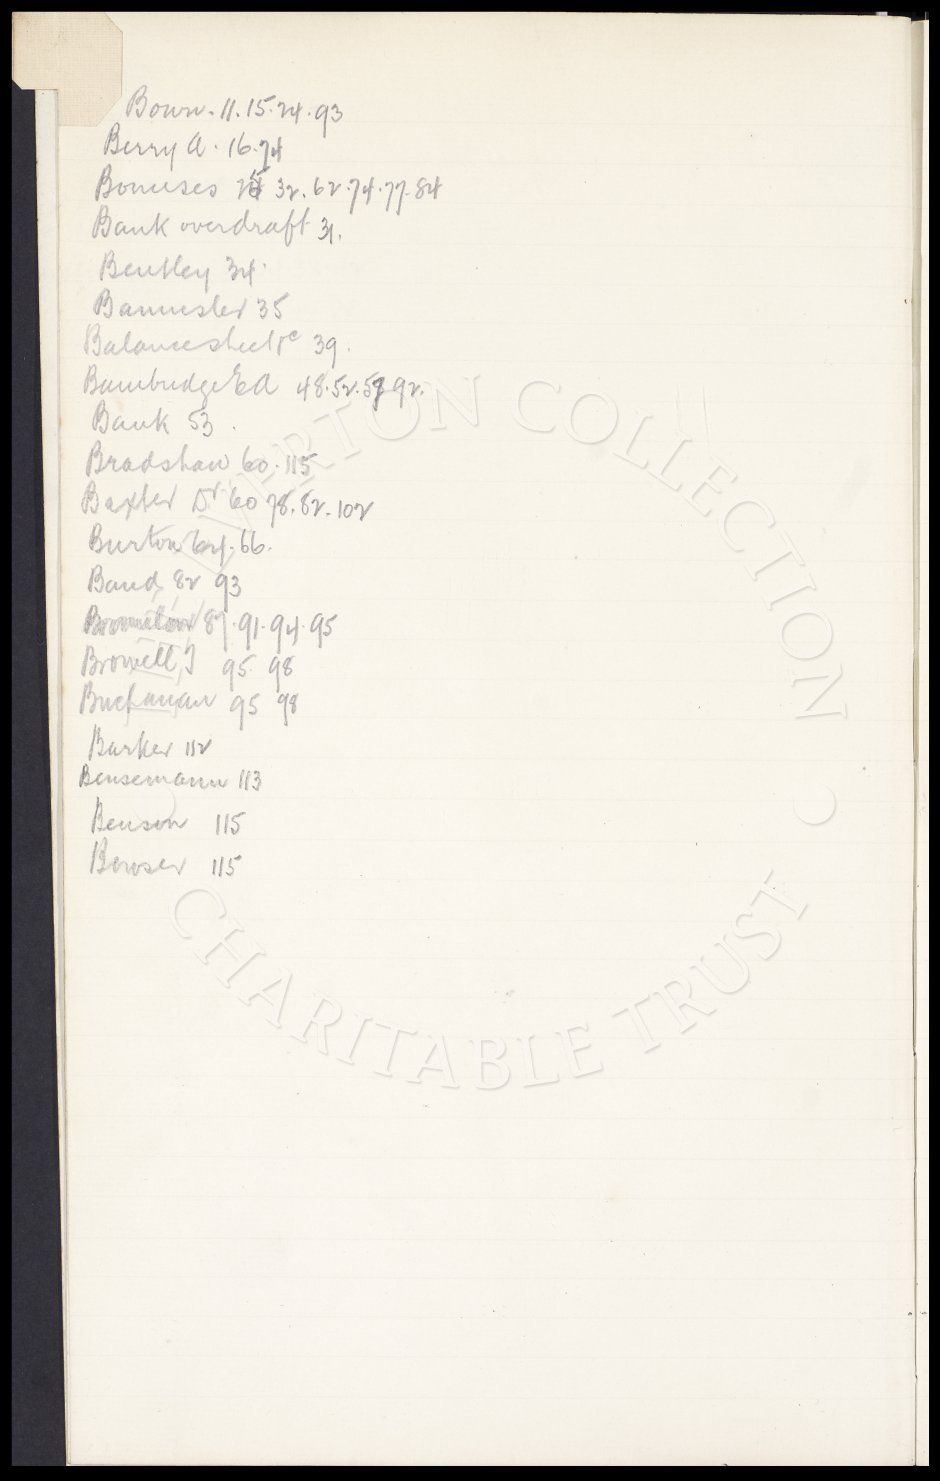 Bown. 11. 15. 24. 93
Berry A. 16. 74
Bonuses 25 32. 62. 74. 77. 84
Bank overdraft 31.
Bentley 34.
Bannister 35
Balance sheet &c 39.
Bainbridge E A 48. 52. 59 92.
Bank 53.
Bradshaw 60. 115
Baxter Dr 60 78. 82. 102
Burton 64. 66.
Band 82 93
87. 91. 94. 95
Browell J 95. 98
Buchanan 95 98
Barker 112
Bensemann 113
Benson 115
Bowser 115
EVERTON COLLECTION
CHARITABLE TRUST